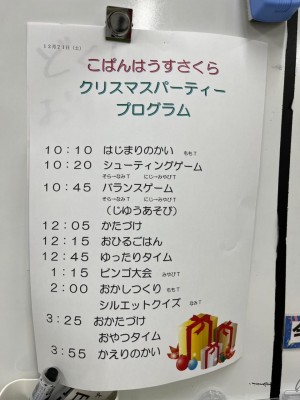 12月21日(土)
こぱんはうすさくら
クリスマスパーティー
プログラム
10:10 はじまりのかい ももT
10:20 シューティングゲーム
そら→なみT にじ→みやびT
10:45 バランスゲーム
そら→なみT にじ→みやびT
(じゆうあそび)
12:05 かたづけ
12:15 おひるごはん
12:45 ゆったりタイム
1:15 ビンゴ大会 みやびT
2:00 おかしつくり ももT
シルエットクイズ なみT
3:25 おかたづけ
おやつタイム
3:55 かえりのかい